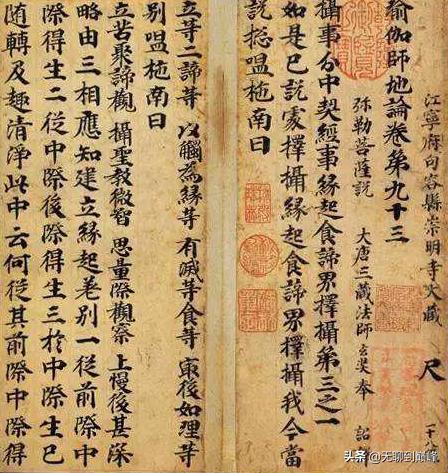 江寧府句容縣崇明寺大藏 尺 一十八
瑜伽師地論卷第九十三
弥勒菩薩説 大唐三藏法師玄奘奉 詔
攝事分中契經事緣起食諦界擇攝第三之一
如是已説處擇攝緣起食諦界擇攝我今當
説揔嗢柂南曰
立等二諦等 以觸為緣等 有滅等食等 冣後如理等
別嗢柂南曰
立苦聚諦觀 攝聖教微智 思量際觀察 上慢後甚深
略由三相應知建立緣起差別一從前際中
際得生二從中際後際得生三於中際生已
随轉及趣清淨此中云何從其前際中際得
头条 @天聊到巅峰